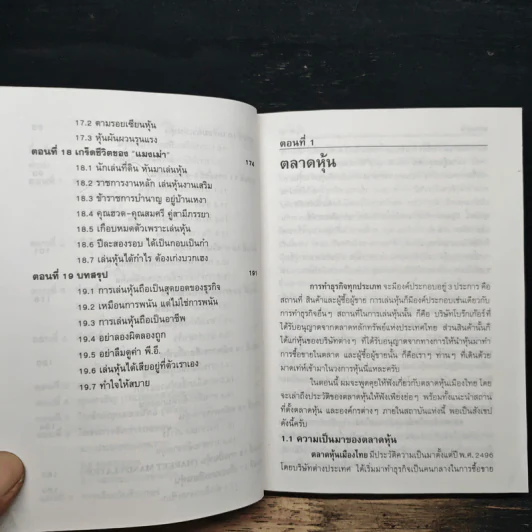 17.2 ตามรอยเซียนหุ้น
17.3 หุ้นผันผวนรุนแรง
ตอนที่ 18 เกร็ดชีวิตของ "แมงเม่า" 174
18.1 นักเล่นที่ดิน หันมาเล่นหุ้น
18.2 ราชการงานหลัก เล่นหุ้นงานเสริม
18.3 ข้าราชการบำนาญ อยู่บ้านเหงา
18.4 คุณฮวด-คุณสมศรี คู่สามีภรรยา
18.5 เกือบหมดตัวเพราะเล่นหุ้น
18.6 ปีละสองรอบ ได้เป็นกอบเป็นกำ
18.7 เล่นหุ้นได้กำไร ต้องเก่งบวกเฮง
ตอนที่ 19 บทสรุป 191
19.1 การเล่นหุ้นถือเป็นสุดยอดของธุรกิจ
19.2 เหมือนการพนัน แต่ไม่ใช่การพนัน
19.3 การเล่นหุ้นถือเป็นอาชีพ
19.4 อย่าลองผิดลองถูก
19.5 อย่าลืมดูค่า พี.อี.
19.6 เล่นหุ้นได้เสียอยู่ที่ตัวเราเอง
19.7 ทำใจให้สบาย
ตอนที่ 1
ตลาดหุ้น
การทำธุรกิจทุกประเภท จะมีองค์ประกอบอยู่ 3 ประการ คือ
สถานที่ สินค้าและผู้ซื้อผู้ขาย การเล่นหุ้นก็มีองค์ประกอบเช่นเดียวกับ
การทำธุรกิจอื่นๆ สถานที่ในการเล่นหุ้นนั้น ก็คือ บริษัทโบรกเกอร์ที่
ได้รับอนุญาตจากตลาดหลักทรัพย์แห่งประเทศไทย ส่วนสินค้านั้นก็
ได้แก่หุ้นของบริษัทต่างๆ ที่ได้รับอนุญาตจากทางการให้นำหุ้นมาทำ
การซื้อขายในตลาด และผู้ซื้อผู้ขายนั้น ก็คือเราๆ ท่านๆ ที่เดินด้วย
มาดเท่ห์เข้ามาในวงการหุ้นนี่แหละครับ
ในตอนนี้ ผมจะพูดคุยให้ฟังเกี่ยวกับตลาดหุ้นเมืองไทย โดย
จะเล่าถึงประวัติของตลาดหุ้นให้ฟังเพียงย่อๆ พร้อมทั้งแนะนำสถาน
ที่ตั้งตลาดหุ้น และองค์กรต่างๆ ภายในสถาบันแห่งนี้ พอเป็นสังเขป
ดังนี้ครับ
1.1 ความเป็นมาของตลาดหุ้น
ตลาดหุ้นเมืองไทย มีประวัติความเป็นมาตั้งแต่ปี พ.ศ. 2496
โดยบริษัทต่างประเทศ ได้เริ่มมาทำธุรกิจเป็นคนกลางในการซื้อขาย